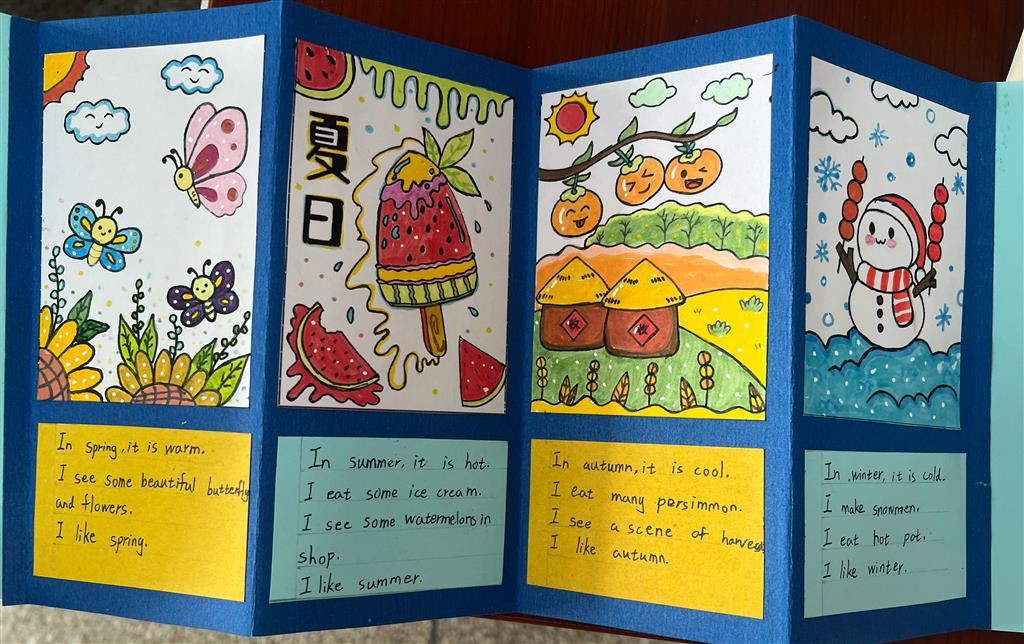 夏日
收
收
In spring, it is warm.
I see some beautiful butterfly
and flowers.
I like spring.
In summer, it is hot.
I eat some ice cream.
I see some watermelons in
shop.
I like summer.
In autumn, it is cool.
I eat many persimmon.
I see a scene of harvest
I like autumn.
In winter, it is cold.
I make snowmen.
I eat hot pot.
I like winter.